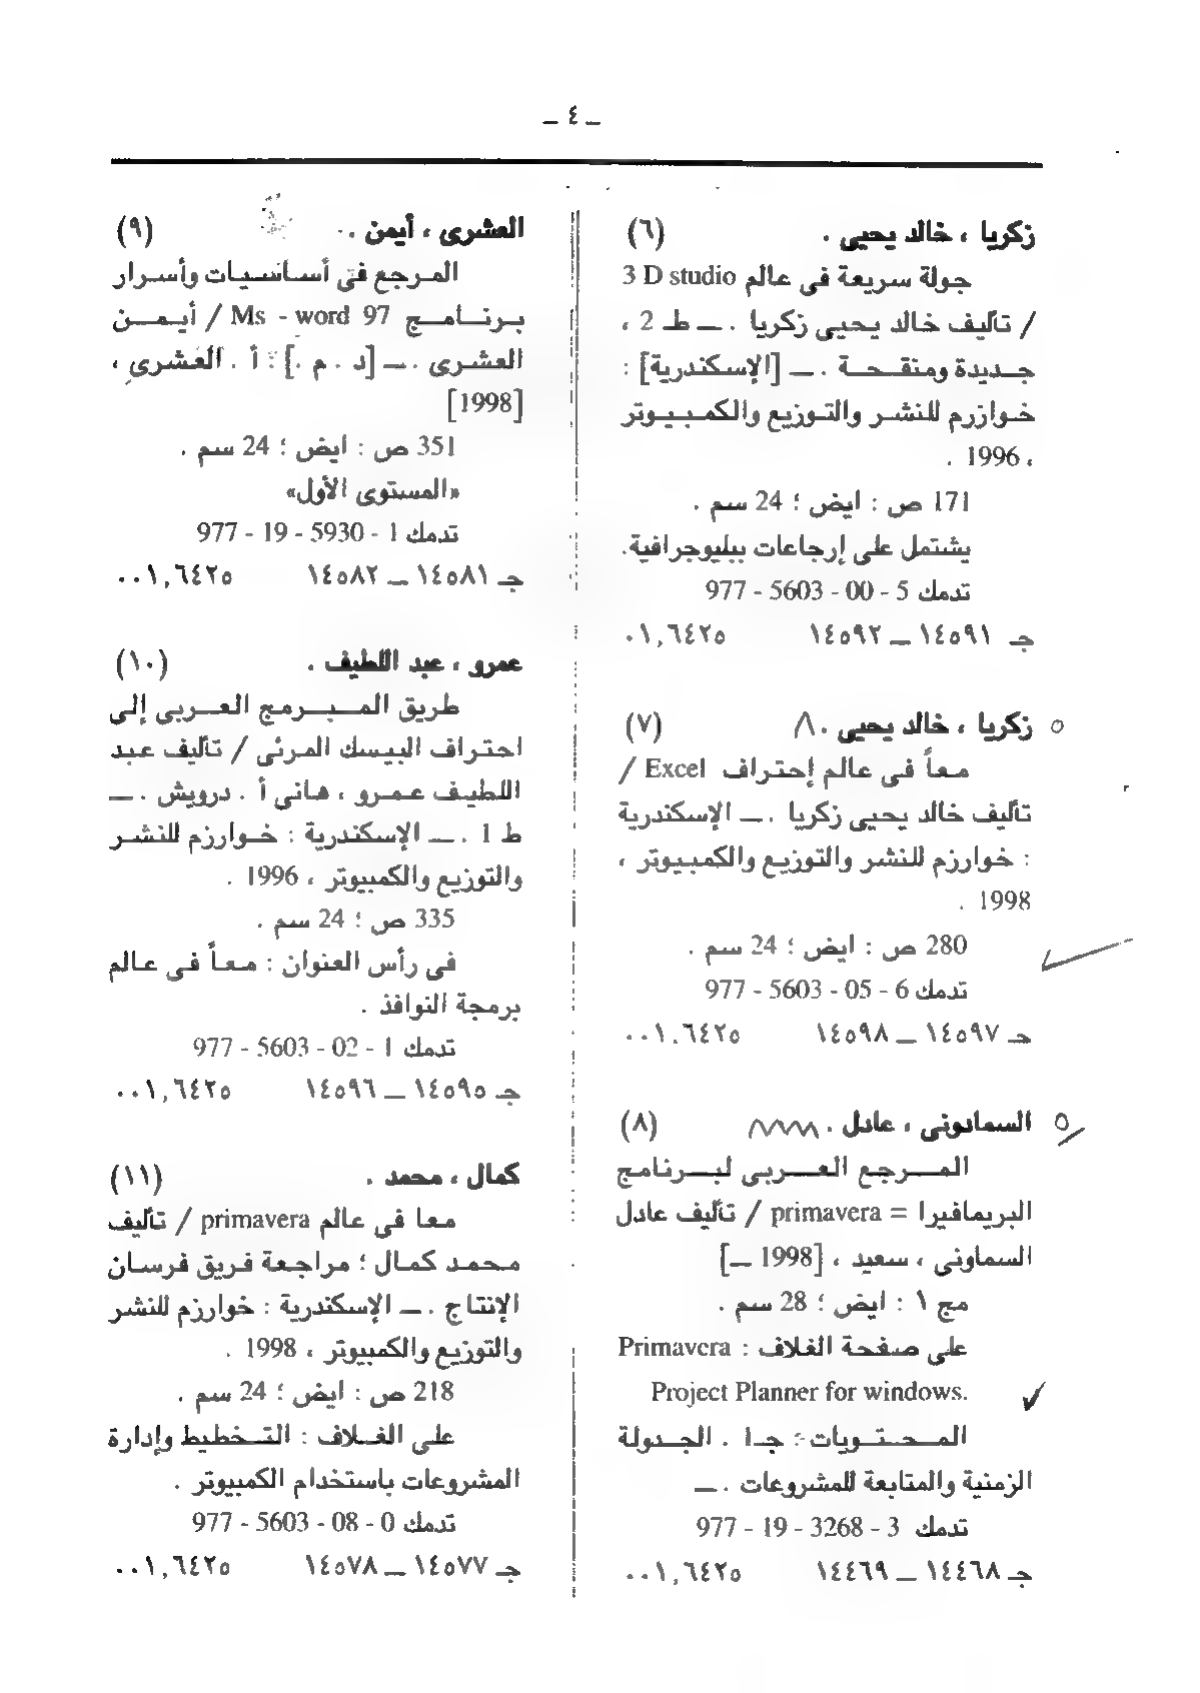 ـ ٤ ـ
زكريا ، خالد يحيى . (٦)
جولة سريعة فى عالم 3 D studio
/ تأليف خالد يحيى زكريا . ـــ طـ 2 ،
جـديدة ومنقـحـة . ـــ [الإسكندرية] :
خوارزم للنشر والتوزيع والكمبيوتر
، 1996 .
171 ص : ايض ؛ 24 سم .
يشتمل على إرجاعات ببليوجرافية.
تدمك 5 - 00 - 5603 - 977
جـ ١٤٥٩١ ـ ١٤٥٩٢ ٠١,٦٤٢٥
زكريا ، خالد يحيى . (٧)
معاً فى عالم إحتراف Excel /
تأليف خالد يحيى زكريا . ـــ الإسكندرية
: خوارزم للنشر والتوزيع والكمبيوتر ،
1998 .
280 ص : ايض ؛ 24 سم .
تدمك 6 - 05 - 5603 - 977
جـ ١٤٥٩٧ ـ ١٤٥٩٨ ٠٠١.٦٤٢٥
السمادونى ، عادل . (٨)
المـرجع العـربى لبـرنامج
البريمافيرا = primavera / تأليف عادل
السماونى ، سعيد ، [1998 ـــ]
مج ١ : ايض ؛ 28 سم .
على صفحة الغلاف : Primavera
Project Planner for windows.
المـحـتـويات : جـا . الجـدولة
الزمنية والمتابعة للمشروعات . ـــ
تدمك 3 - 3268 - 19 - 977
جـ ١٤٤٦٨ ـ ١٤٤٦٩ ٠٠١,٦٤٢٥
العشرى ، أيمن . (٩)
المـرجع فى أساسيات وأسرار
برنامج Ms - word 97 / أيمـن
العشرى . ـــ [د . م .] : أ . العشرى ،
[1998]
351 ص : ايض ؛ 24 سم .
«المستوى الأول»
تدمك 1 - 5930 - 19 - 977
جـ ١٤٥٨١ ـ ١٤٥٨٢ ٠٠١,٦٤٢٥
عمرو ، عبد اللطيف . (١٠)
طريق المـبـرمج العـربى إلى
احتراف البيسك المرئى / تأليف عبد
اللطيف عمرو ، هانى أ . درويش . ـــ
ط 1 . ـــ الإسكندرية : خوارزم للنشر
والتوزيع والكمبيوتر ، 1996 .
335 ص ؛ 24 سم .
فى رأس العنوان : معاً فى عالم
برمجة النوافذ .
تدمك 1 - 02 - 5603 - 977
جـ ١٤٥٩٥ ـ ١٤٥٩٦ ٠٠١,٦٤٢٥
كمال ، محمد . (١١)
معا فى عالم primavera / تأليف
محمد كمال ؛ مراجعة فريق فرسان
الإنتاج . ـــ الإسكندرية : خوارزم للنشر
والتوزيع والكمبيوتر ، 1998 .
218 ص : ايض ؛ 24 سم .
على الغـلاف : التـخطيط وإدارة
المشروعات باستخدام الكمبيوتر .
تدمك 0 - 08 - 5603 - 977
جـ ١٤٥٧٧ ـ ١٤٥٧٨ ٠٠١,٦٤٢٥